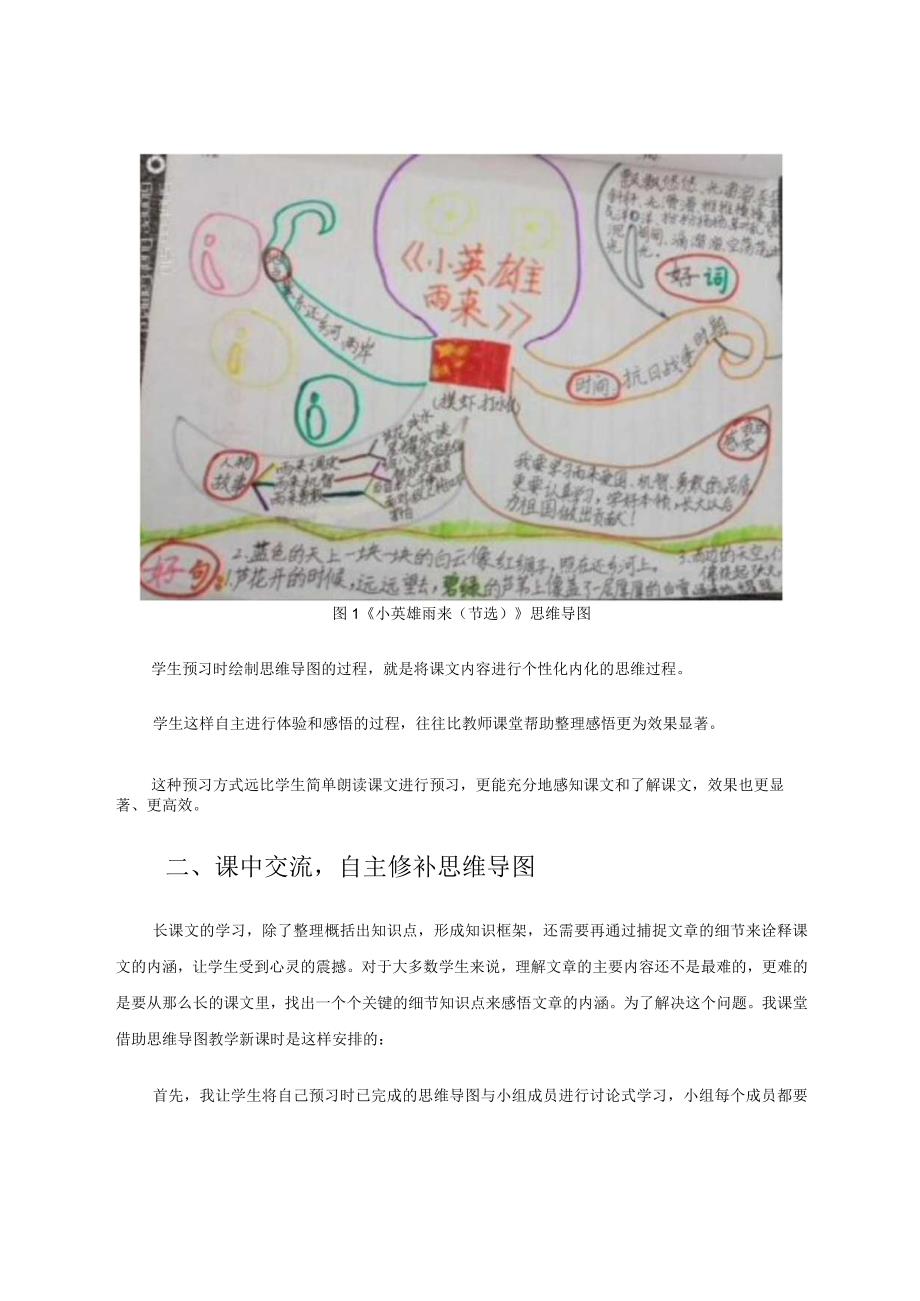 飘飘悠悠、光
好词
《小英雄
雨来》
还乡河两岸
时间
抗日战争时期
我的
感受
人物
故事
雨来调皮
雨来机智
雨来勇敢
(摸虾、打水仗)
我要学习雨来爱国、机智、勇敢的品质,
更要认真学习,学好本领,长大以后
为祖国做出贡献!
好句
2.蓝色的天上一块一块的白云像红绸子,照在还乡河上。
1.芦花开的时候,远远望去,碧绿的芦苇上像盖了一层厚厚的白雪
图 1《小英雄雨来(节选)》思维导图
学生预习时绘制思维导图的过程,就是将课文内容进行个性化内化的思维过程。
学生这样自主进行体验和感悟的过程,往往比教师课堂帮助整理感悟更为效果显著。
这种预习方式远比学生简单朗读课文进行预习,更能充分地感知课文和了解课文,效果也更显
著、更高效。
二、课中交流,自主修补思维导图
长课文的学习,除了整理概括出知识点,形成知识框架,还需要再通过捕捉文章的细节来诠释课
文的内涵,让学生受到心灵的震撼。对于大多数学生来说,理解文章的主要内容还不是最难的,更难的
是要从那么长的课文里,找出一个个关键的细节知识点来感悟文章的内涵。为了解决这个问题。我课堂
借助思维导图教学新课时是这样安排的:
首先,我让学生将自己预习时已完成的思维导图与小组成员进行讨论式学习,小组每个成员都要